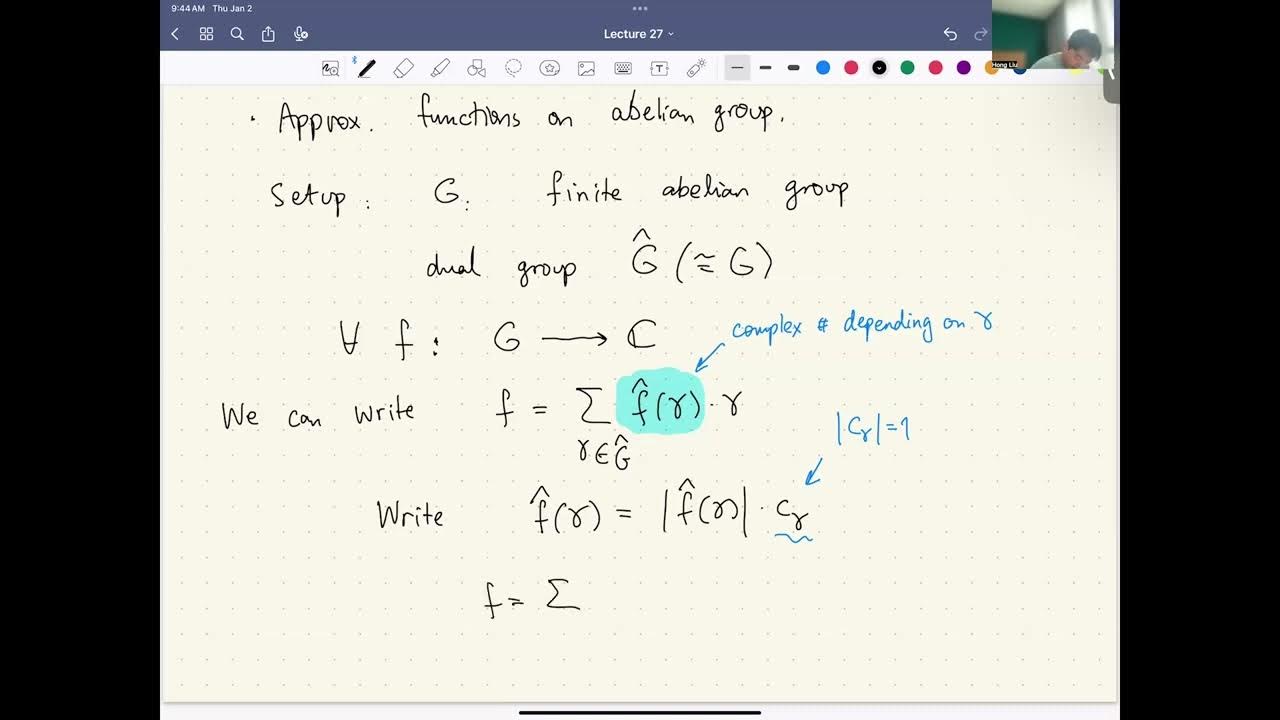 9:44 AM Thu Jan 2
Lecture 27
Hong Liu
· Approx. functions on abelian group.
Setup: G: finite abelian group
dual group Ĝ (≅ G)
∀ f: G ⟶ ℂ
complex # depending on γ
We can write f = Σ f̂(γ)·γ
γ∈Ĝ
|Cγ|=1
Write f̂(γ) = |f̂(γ)|·Cγ
f = Σ